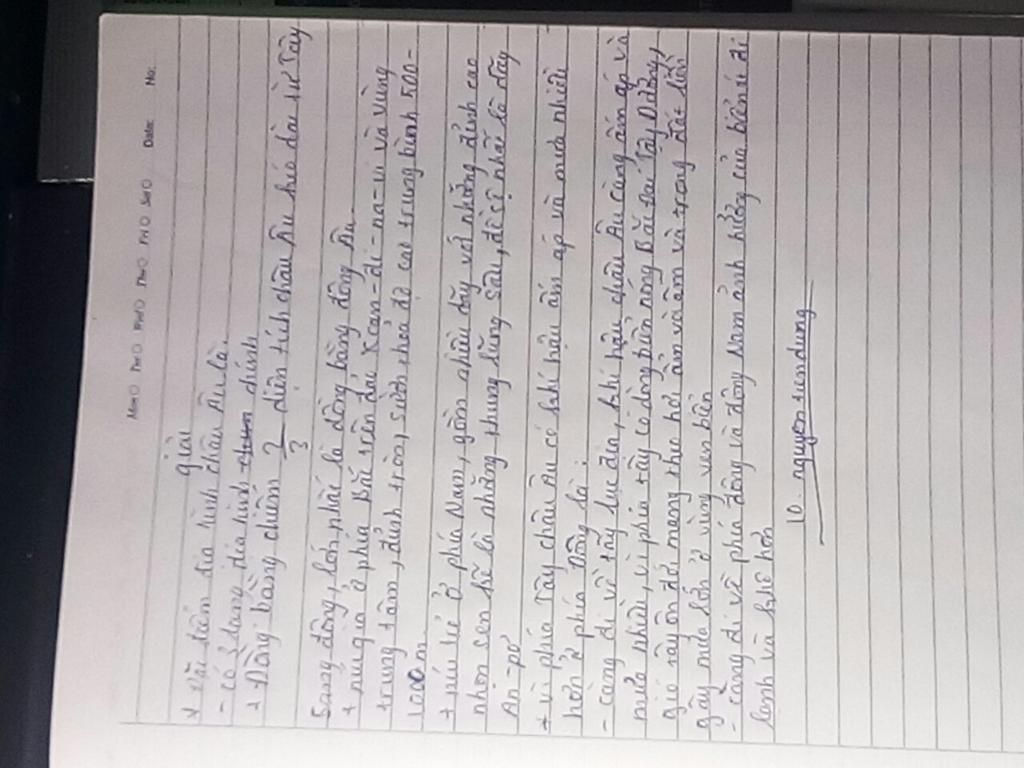 No:
Date:
Mon Tue Wed Thu Fri Sat
giải
* Đặc điểm địa hình châu Âu là:
- có 3 dạng địa hình chính
+ Đồng bằng chiếm 2/3 diện tích châu Âu kéo dài từ Tây
sang đông, lớn nhất là đồng bằng đông Âu
+ núi già ở phía Bắc trên đảo Xcan-đi-na-vi và vùng
trung tâm, đỉnh tròn, sườn thoải độ cao trung bình 500-
1000m
+ núi trẻ ở phía Nam, gồm nhiều dãy với những đỉnh cao
nhọn sen kẽ là những thung lũng sâu, đồ sộ nhất là dãy
An-pơ
* Vì phía Tây châu Âu có khí hậu ấm áp và mưa nhiều
hơn ở phía Đông là:
- càng đi về tây lục địa, khí hậu châu Âu càng ấm áp và
mưa nhiều, vì phía tây có dòng biển nóng Bắc Đại Tây Dương,
gió tây ôn đới mang theo hơi ẩm và ấm vào trong đất liền
gây mưa lớn ở vùng ven biển
- càng đi về phía đông và đông Nam ảnh hưởng của biển
lạnh và khô hơn
10. nguyen tien dung